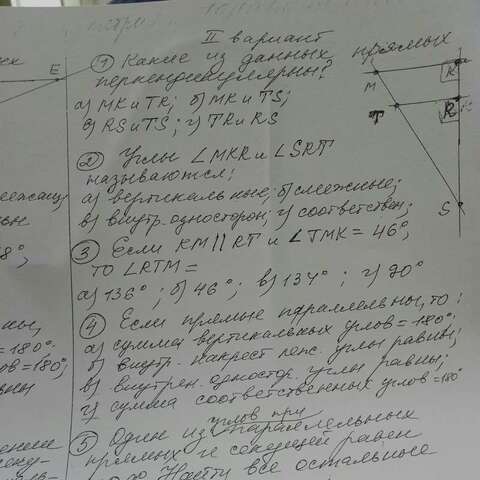 II вариант
① Какие из данных прямых
перпендикулярны?
а) MK и TR; б) MK и TS;
в) RS и TS; г) TR и RS
② Углы ∠MKR и ∠SRT
называются:
а) вертикальные; б) смежные;
в) внутр. односторон; г) соответствен;
③ Если KM || RT и ∠TMK = 46°,
то ∠RTM =
а) 136°; б) 46°; в) 134°; г) 90°
④ Если прямые параллельны, то:
а) сумма вертикальных углов = 180°;
б) внутр. накрест леж. углы равны;
в) внутрен. одностор. углы равны;
г) сумма соответственных углов = 180°
углов при
⑤ Один из параллельных
прямых и секущей равен
Найти все остальные
E
M
K
T
R
S
8°;
= 180°
= 180°;